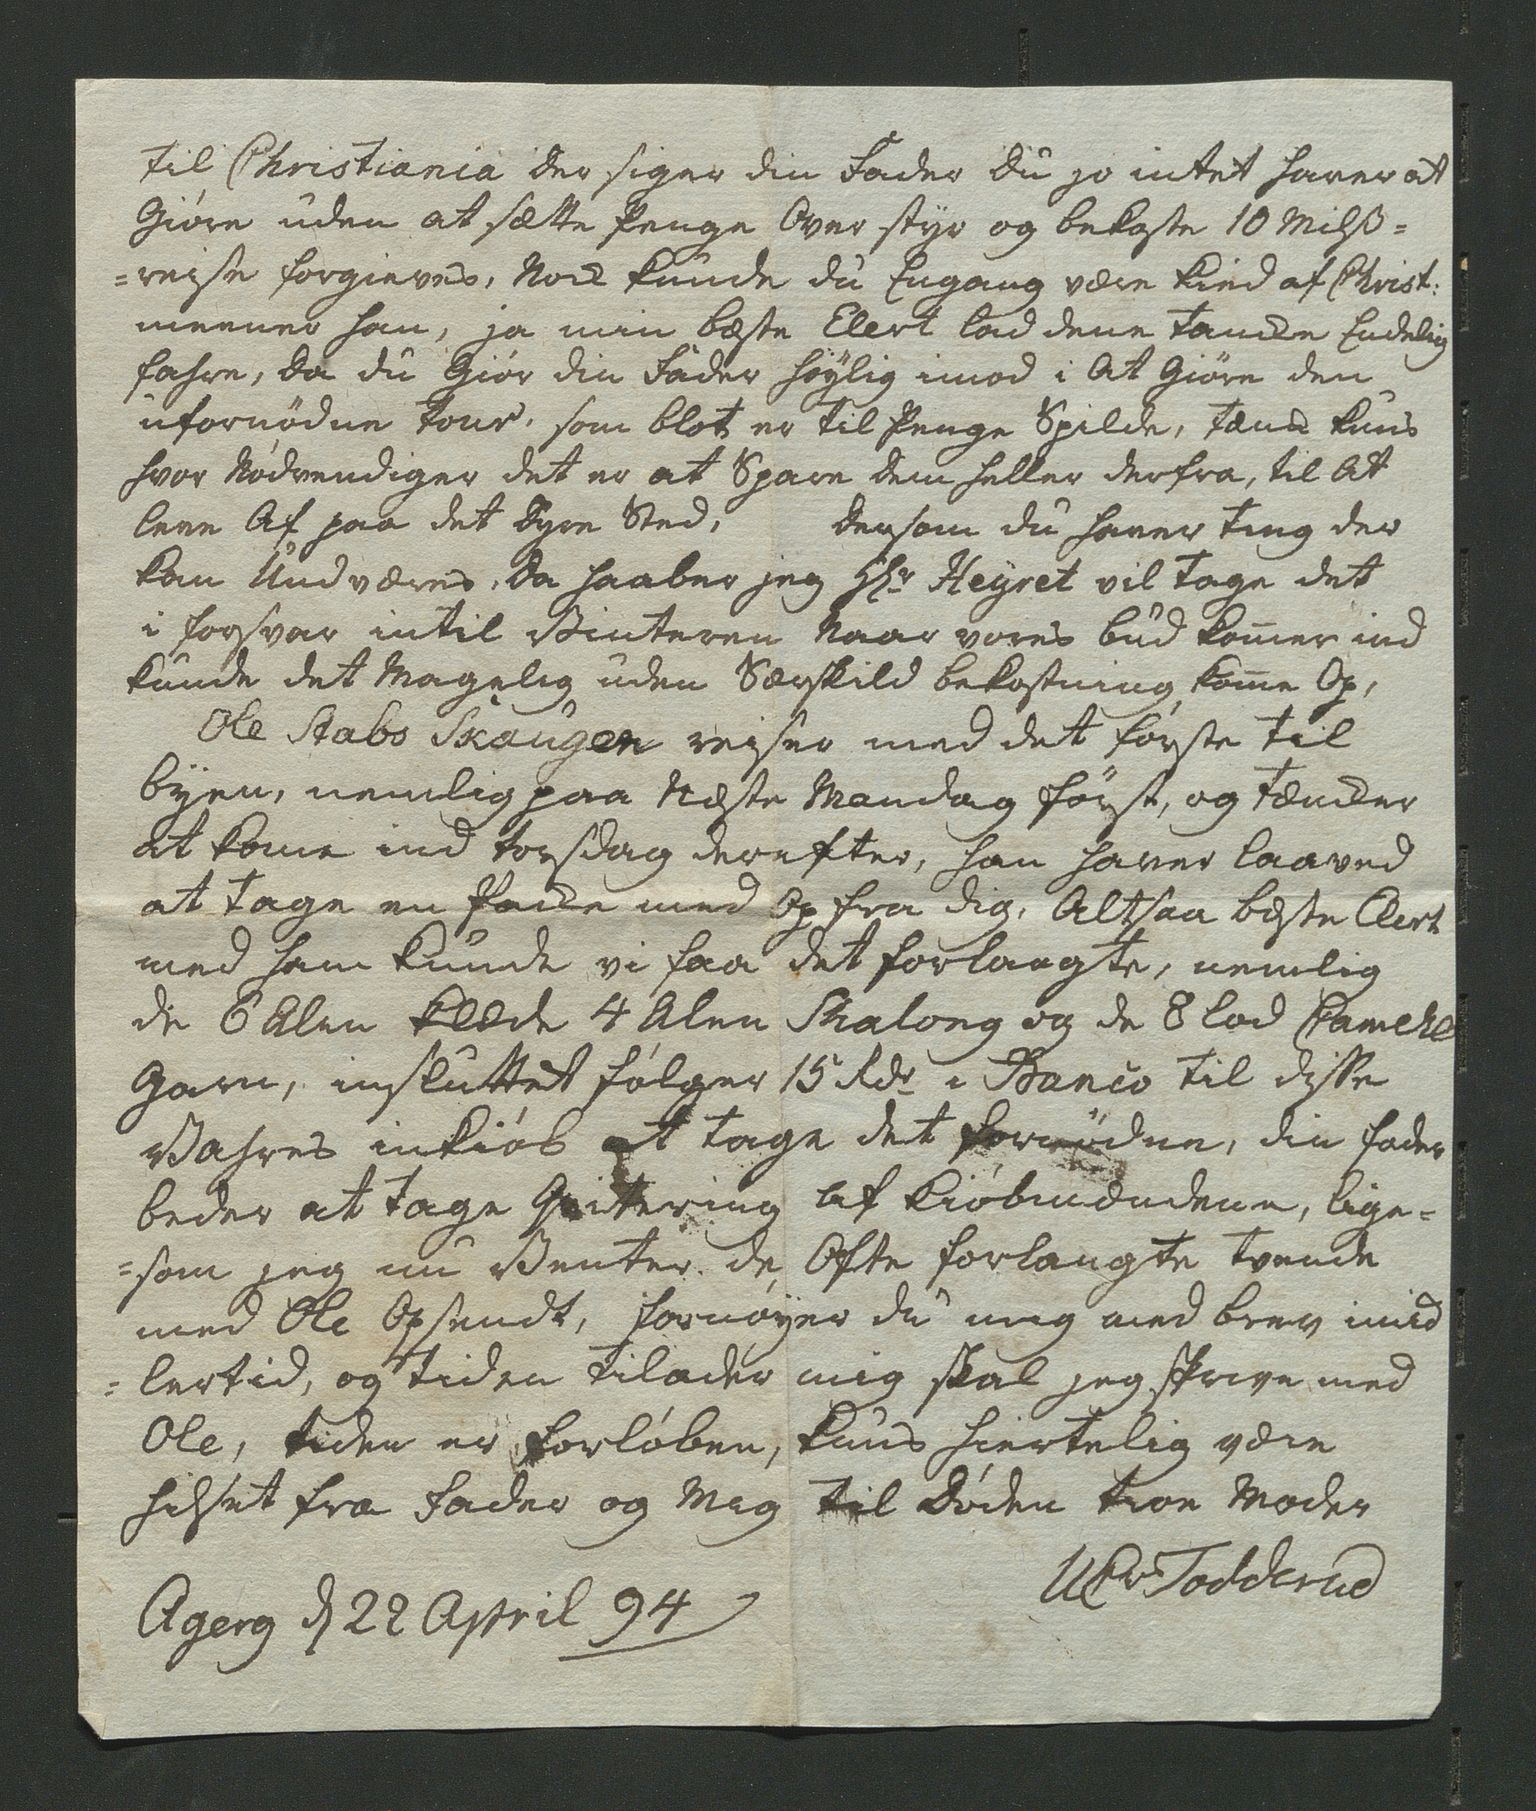 til Christiania der siger din Fader du jo intet haver at
Giøre uden at sætte Penge Over styr og bekoste 10 Milß=
=reise forgieves, Nok kunde du Engang være kied af Christ:
meener han, ja min bæste Elert lad dene tancke Endelig
fahre, da du Giør din Fader høylig imod i At Giøre den
ufornødne tour, som blot er til Penge Spilde, tænk kuns
hvor Nødvendiger det er at Spare dem heller derfra, til At
leve Af paa det dyre Sted, dersom du haver ting der
kan Undværes, da haaber jeg Hr Heyret vil tage det
i forsvar intil Vinteren Naar vores bud kom̅er ind
kunde det Magelig uden Særskild bekostning kom̅e Op,
Ole Stabs Skaugen reiser med det første til
byen, nemlig paa Næste Mandag først, og tæncker
at kome ind torsdag derefter, han haver laaved
at tage en Packe med Op fra dig, Altsaa bæste Elert
med ham kunde vi faa det forlangte, nemlig
de 6 Alen klæde 4 Alen Skalong og de 8 lod Camehl
Garn, insluttet følger 15 Rdr i Banco til disse
Vahres inkiøb at tage det fornødne, din fader
beder at tage Qvittering af kiøbmændene, lige=
=som jeg nu Venter de Ofte forlangte tvende
med Ole Opsendt, fornøyer du mig med brev imid
=lertid, og tiden tilader mig skal jeg skrive med
Ole, tiden er forløben, kuns hiertelig være
hilset fra Fader og Mig til Døden troe Moder
Todderud
Agerg d 22 April 94